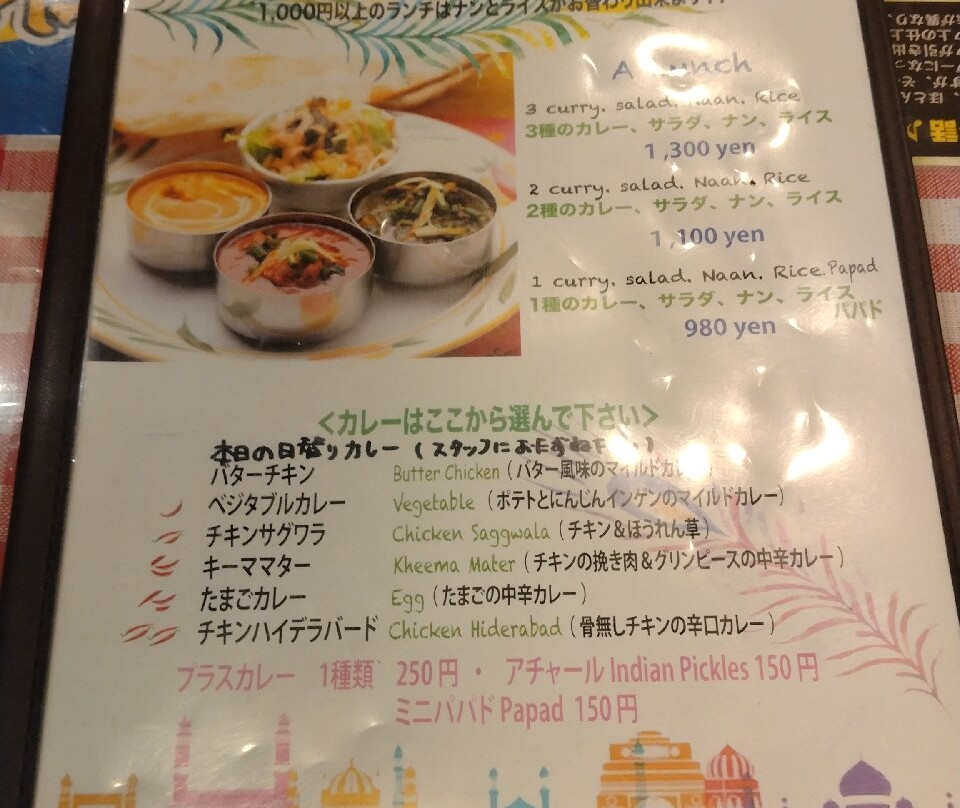 1,000円以上のランチはナンとライスがお替わり出来ます!!
A Lunch
3 curry. salad. Naan. Rice
3種のカレー、サラダ、ナン、ライス
1,300 yen
2 curry. salad. Naan. Rice
2種のカレー、サラダ、ナン、ライス
1,100 yen
1 curry. salad. Naan. Rice.Papad
1種のカレー、サラダ、ナン、ライス
パパド
980 yen
<カレーはここから選んで下さい>
本日の日替りカレー (スタッフにおたずね下さい)
バターチキン Butter Chicken (バター風味のマイルドカレー)
ベジタブルカレー Vegetable (ポテトとにんじんインゲンのマイルドカレー)
チキンサグワラ Chicken Saggwala (チキン&ほうれん草)
キーママター Kheema Mater (チキンの挽き肉&グリンピースの中辛カレー)
たまごカレー Egg (たまごの中辛カレー)
チキンハイデラバード Chicken Hiderabad (骨無しチキンの辛口カレー)
プラスカレー 1種類 250円 ・ アチャール Indian Pickles 150円
ミニパパド Papad 150円